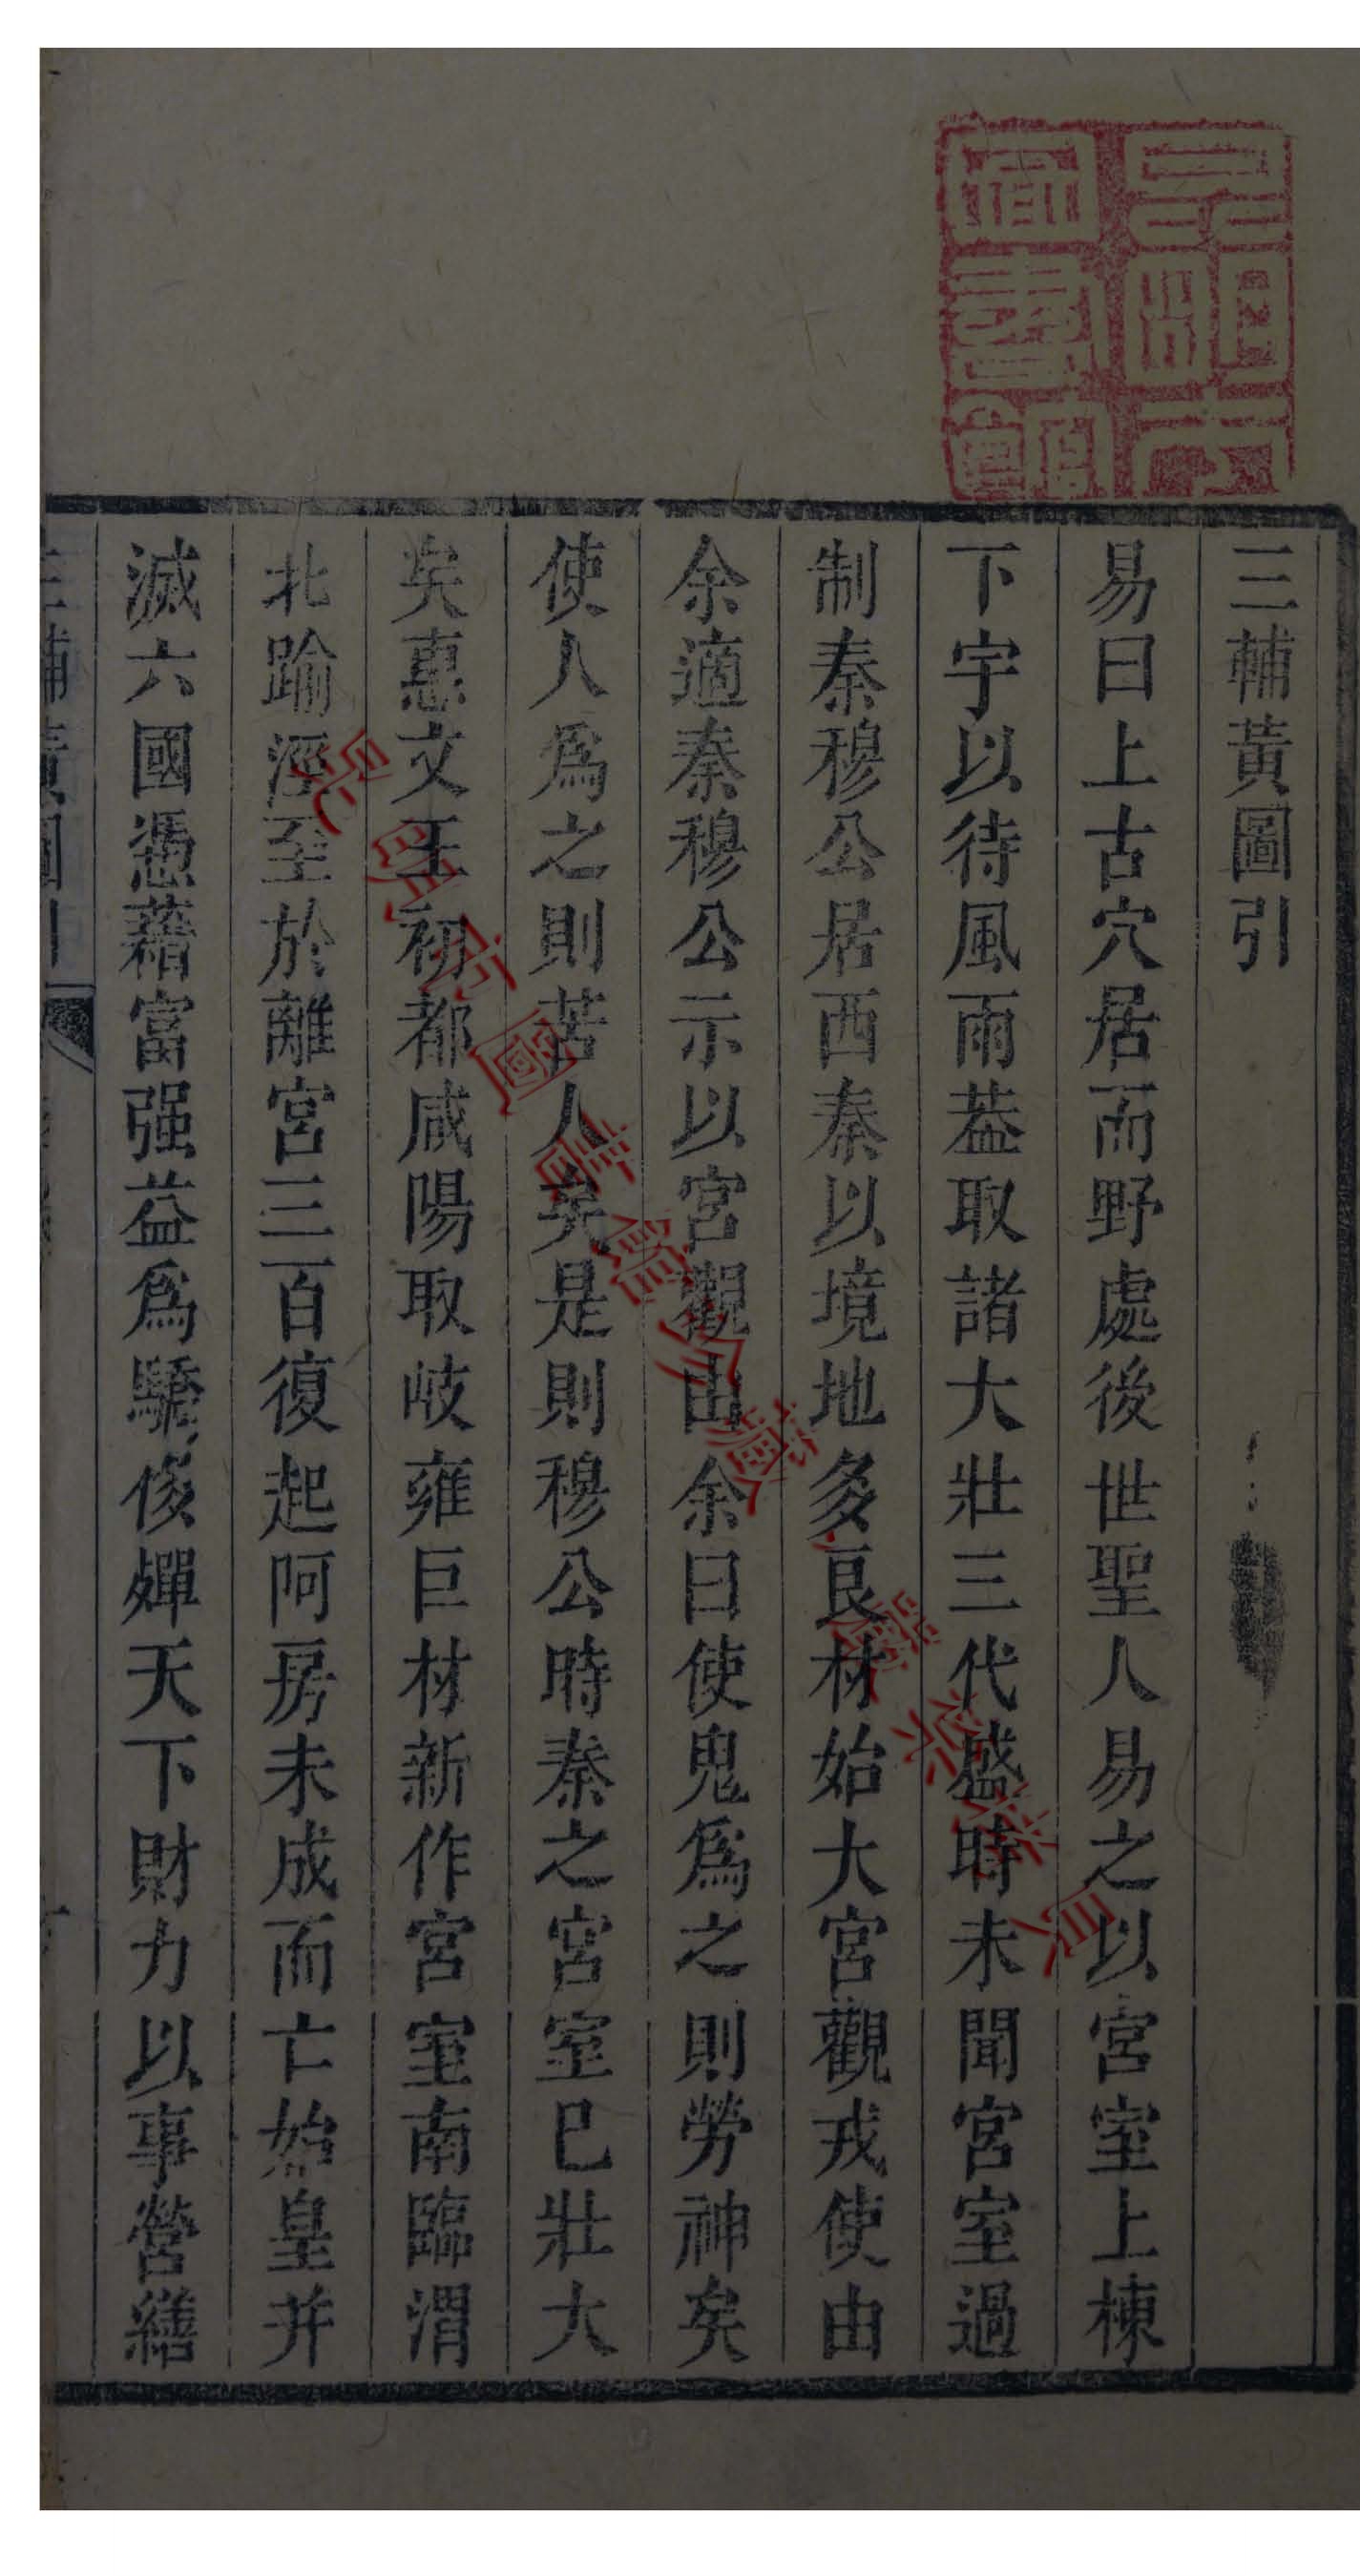 三輔黃圖引
易曰上古穴居而野處後世聖人易之以宮室上棟
下宇以待風雨葢取諸大壯三代盛時未聞宮室過
制秦穆公居西秦以境地多良材始大宮觀戎使由
余適秦穆公示以宮觀由余曰使鬼爲之則勞神矣
使人爲之則苦人矣是則穆公時秦之宮室已壯大
矣惠文王初都咸陽取岐雍巨材新作宮室南臨渭
北踰涇至於離宮三百復起阿房未成而亡始皇并
滅六國憑藉富强益爲驕侈殫天下財力以事營繕
三輔黃圖引
昆明市圖書館
昆明市圖書館珍藏·嚴禁裝頁